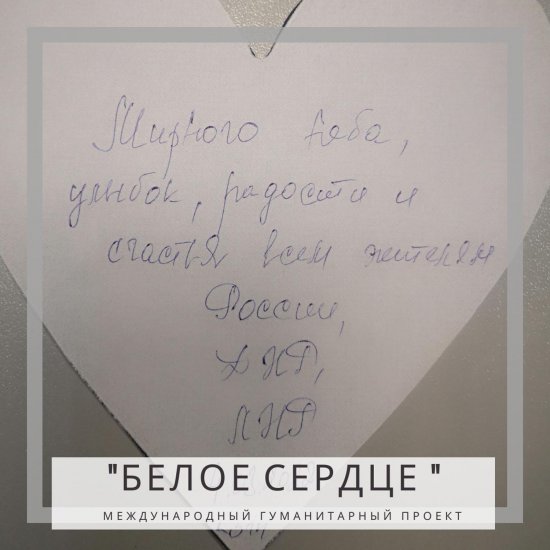 Мирного неба,
улыбок, радости и
счастья всем жителям
России,
ДНР,
ЛНР
"БЕЛОЕ СЕРДЦЕ "
МЕЖДУНАРОДНЫЙ ГУМАНИТАРНЫЙ ПРОЕКТ